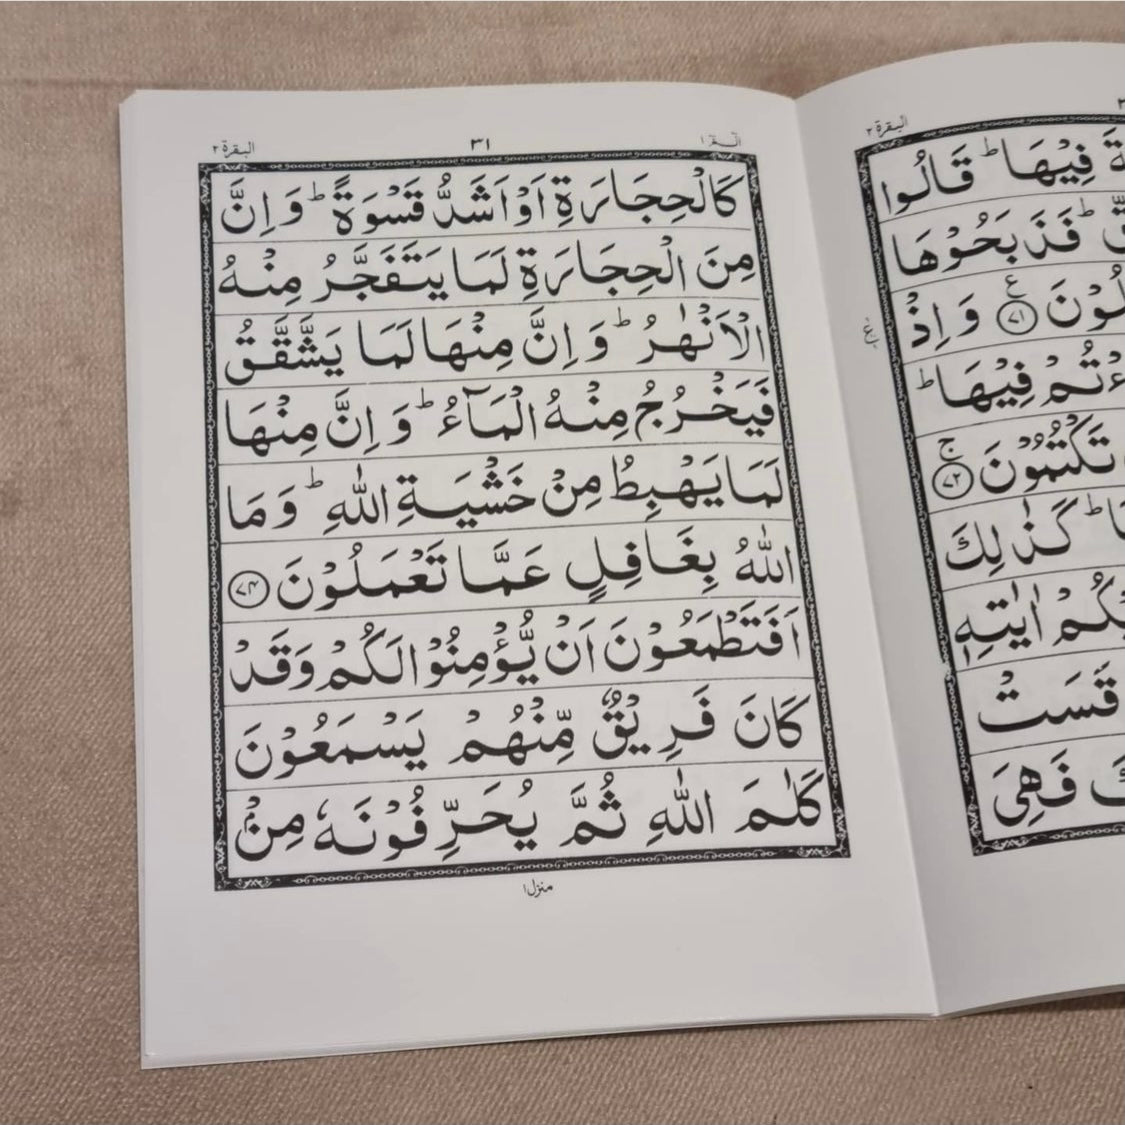 البقرة ٢
٣١
الۤمّۤ ١
كَالْحِجَارَةِ اَوْ اَشَدُّ قَسْوَةً ؕ وَ اِنَّ
مِنَ الْحِجَارَةِ لَمَا یَتَفَجَّرُ مِنْهُ
الْاَنْهٰرُ ؕ وَ اِنَّ مِنْهَا لَمَا یَشَّقَّقُ
فَیَخْرُجُ مِنْهُ الْمَآءُ ؕ وَ اِنَّ مِنْهَا
لَمَا یَهْبِطُ مِنْ خَشْیَةِ اللّٰهِ ؕ وَ مَا
اللّٰهُ بِغَافِلٍ عَمَّا تَعْمَلُوْنَ ﴿۷۴﴾
اَفَتَطْمَعُوْنَ اَنْ یُّؤْمِنُوْا لَكُمْ وَ قَدْ
كَانَ فَرِیْقٌ مِّنْهُمْ یَسْمَعُوْنَ
كَلٰمَ اللّٰهِ ثُمَّ یُحَرِّفُوْنَهٗ مِنْۢ
منزل ١
البقرة ٢
فِیْهَا ؕ قَالُوا
فَذَبَحُوْهَا
﴿۷۱﴾ ع وَ اِذْ
فِیْهَا ؕ
تَكْتُمُوْنَ ﴿۷۲﴾ ج
ؕ كَذٰلِكَ
اٰیٰتِهٖ
قَسَتْ
فَهِیَ